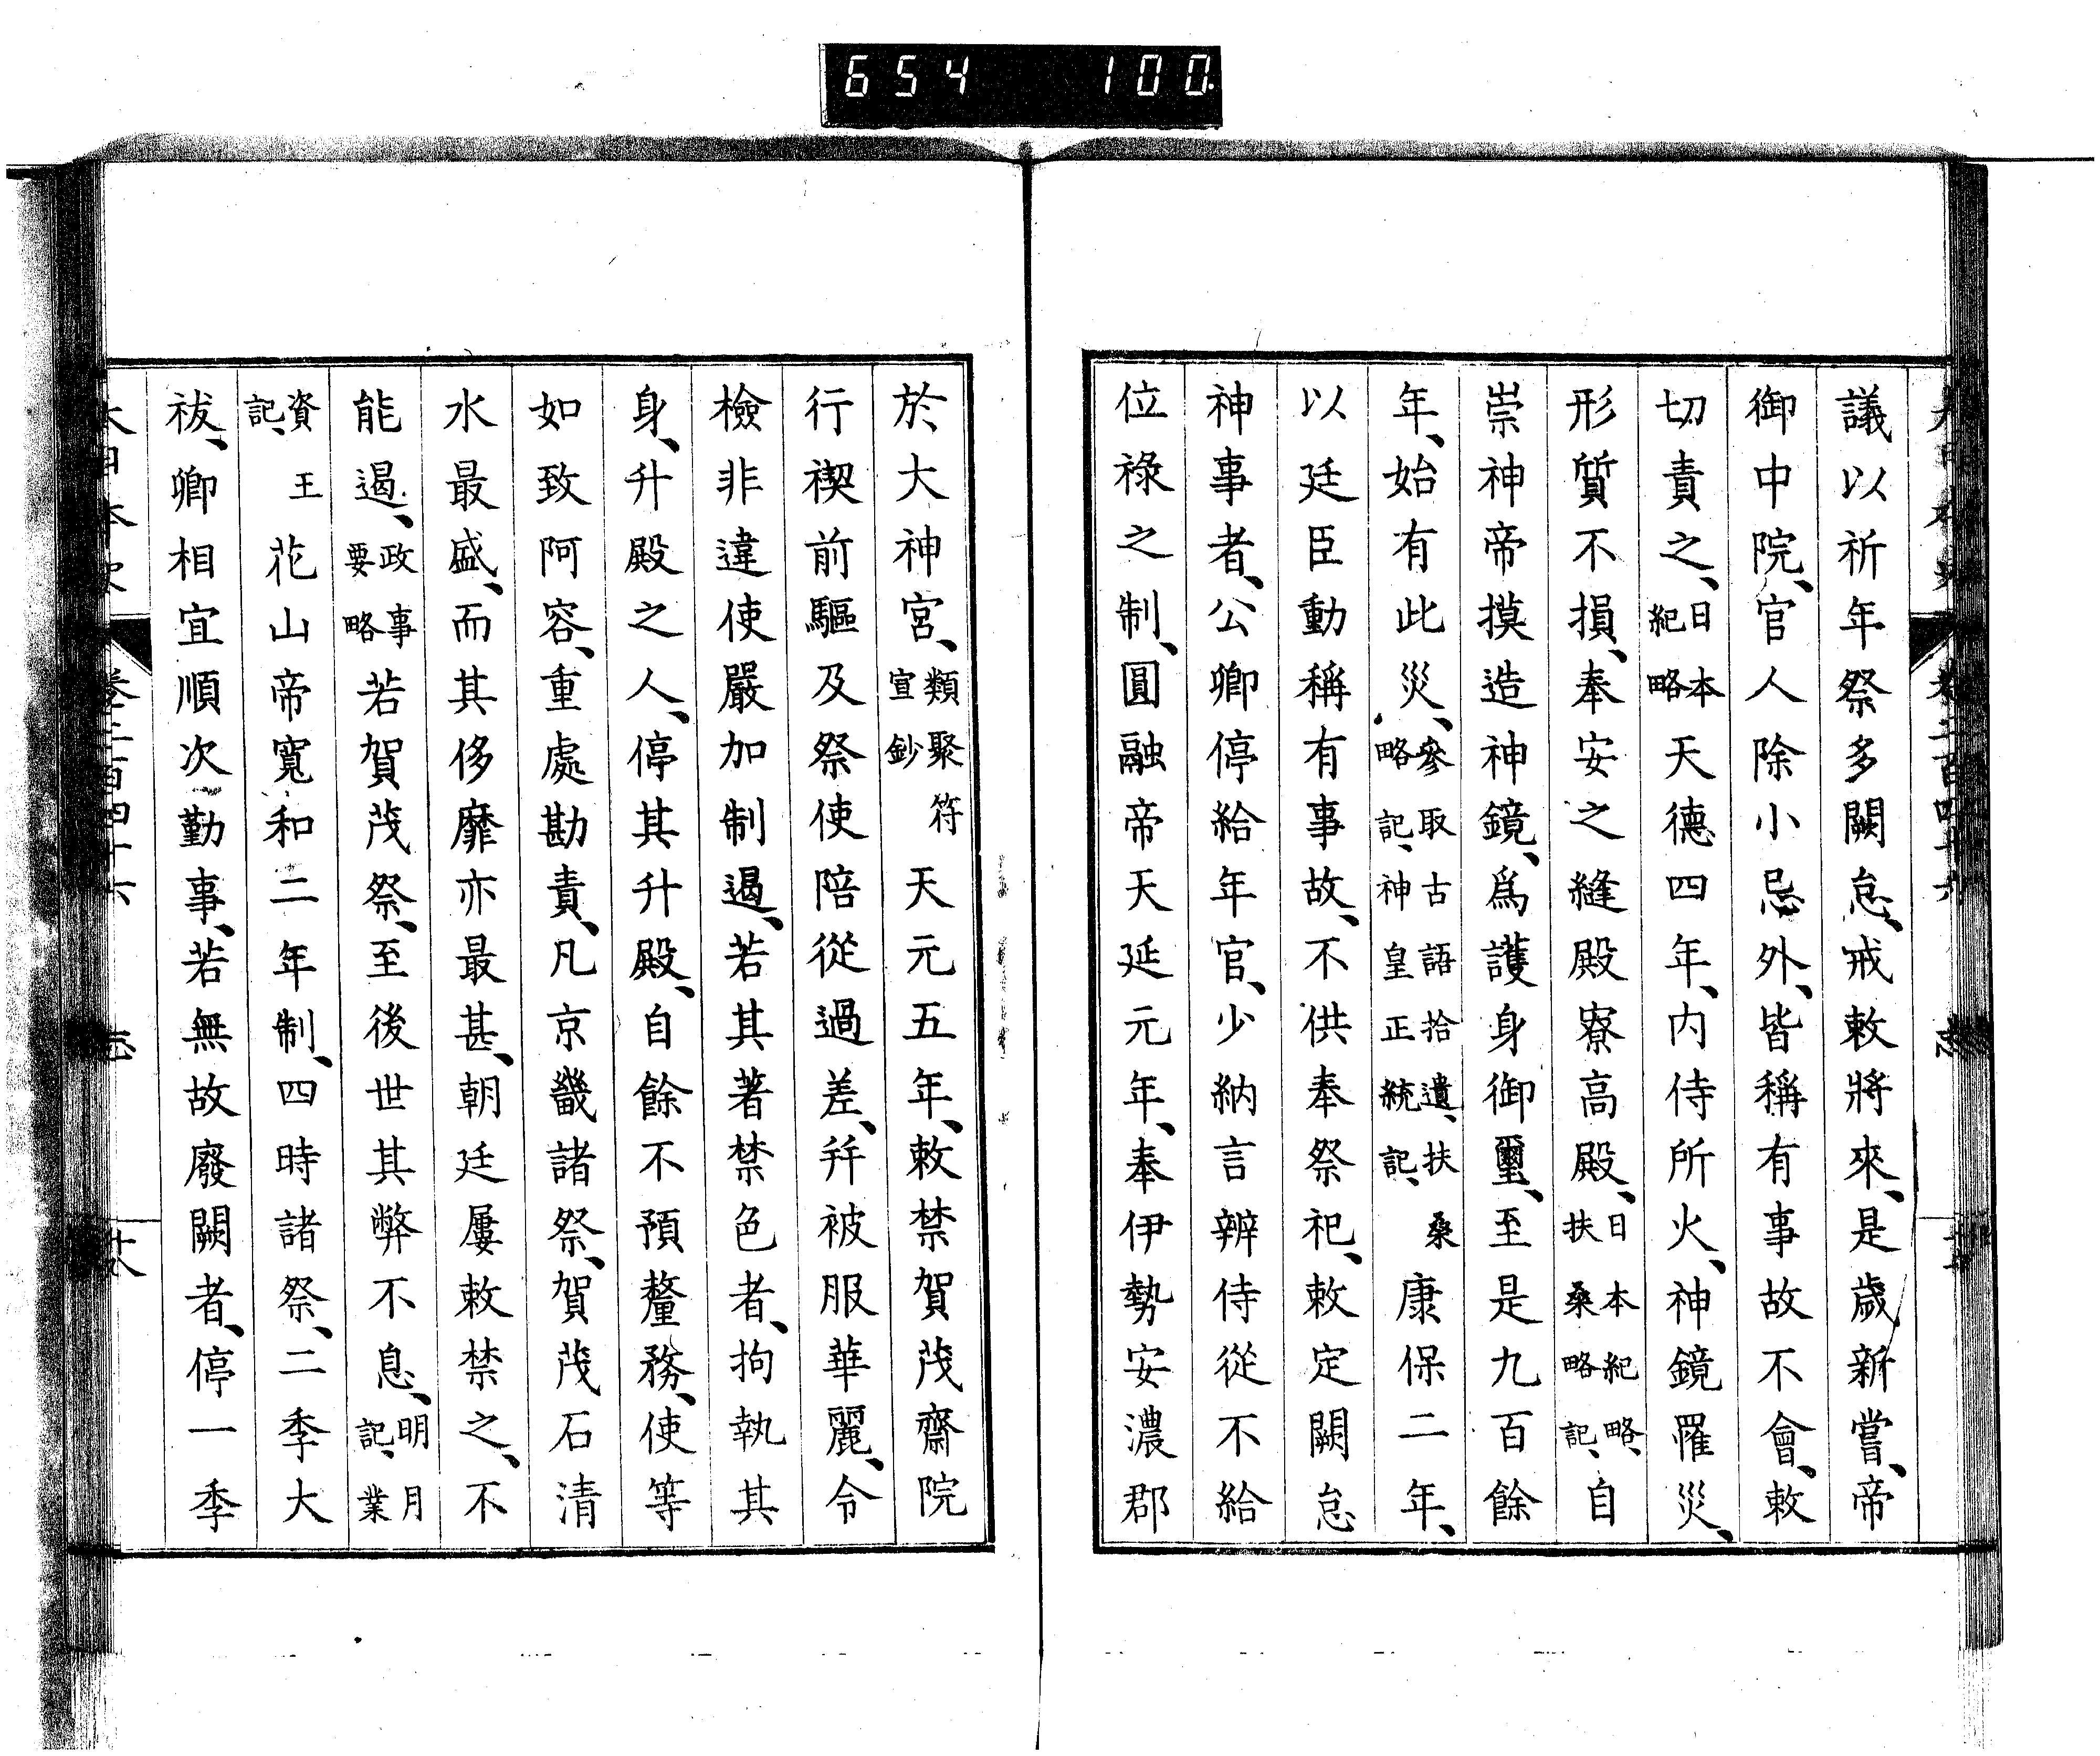 654 100
議以祈年祭多闕怠、戒敕將來、是歲新嘗、帝
御中院、官人除小忌外、皆稱有事故不會、敕
切責之、日本紀略天德四年、內侍所火、神鏡罹災、
形質不損、奉安之縫殿寮高殿、日本紀略、扶桑略記、自
崇神帝摸造神鏡、爲護身御璽、至是九百餘
年、始有此災、參取古語拾遺、扶桑略記、神皇正統記、康保二年、
以廷臣動稱有事故、不供奉祭祀、敕定闕怠
神事者、公卿停給年官、少納言辨侍從不給
位祿之制、圓融帝天延元年、奉伊勢安濃郡
於大神宮、類聚符宣鈔天元五年、敕禁賀茂齋院
行禊前驅及祭使陪從過差、幷被服華麗、令
檢非違使嚴加制遏、若其著禁色者、拘執其
身、升殿之人、停其升殿、自餘不預釐務、使等
如致阿容、重處勘責、凡京畿諸祭、賀茂石清
水最盛、而其侈靡亦最甚、朝廷屢敕禁之、不
能遏、政事要略若賀茂祭、至後世其弊不息、明月記、業
資王記、花山帝寬和二年制、四時諸祭、二季大
祓、卿相宜順次勤事、若無故廢闕者、停一季
大日本史 卷二百四十六 志 十八